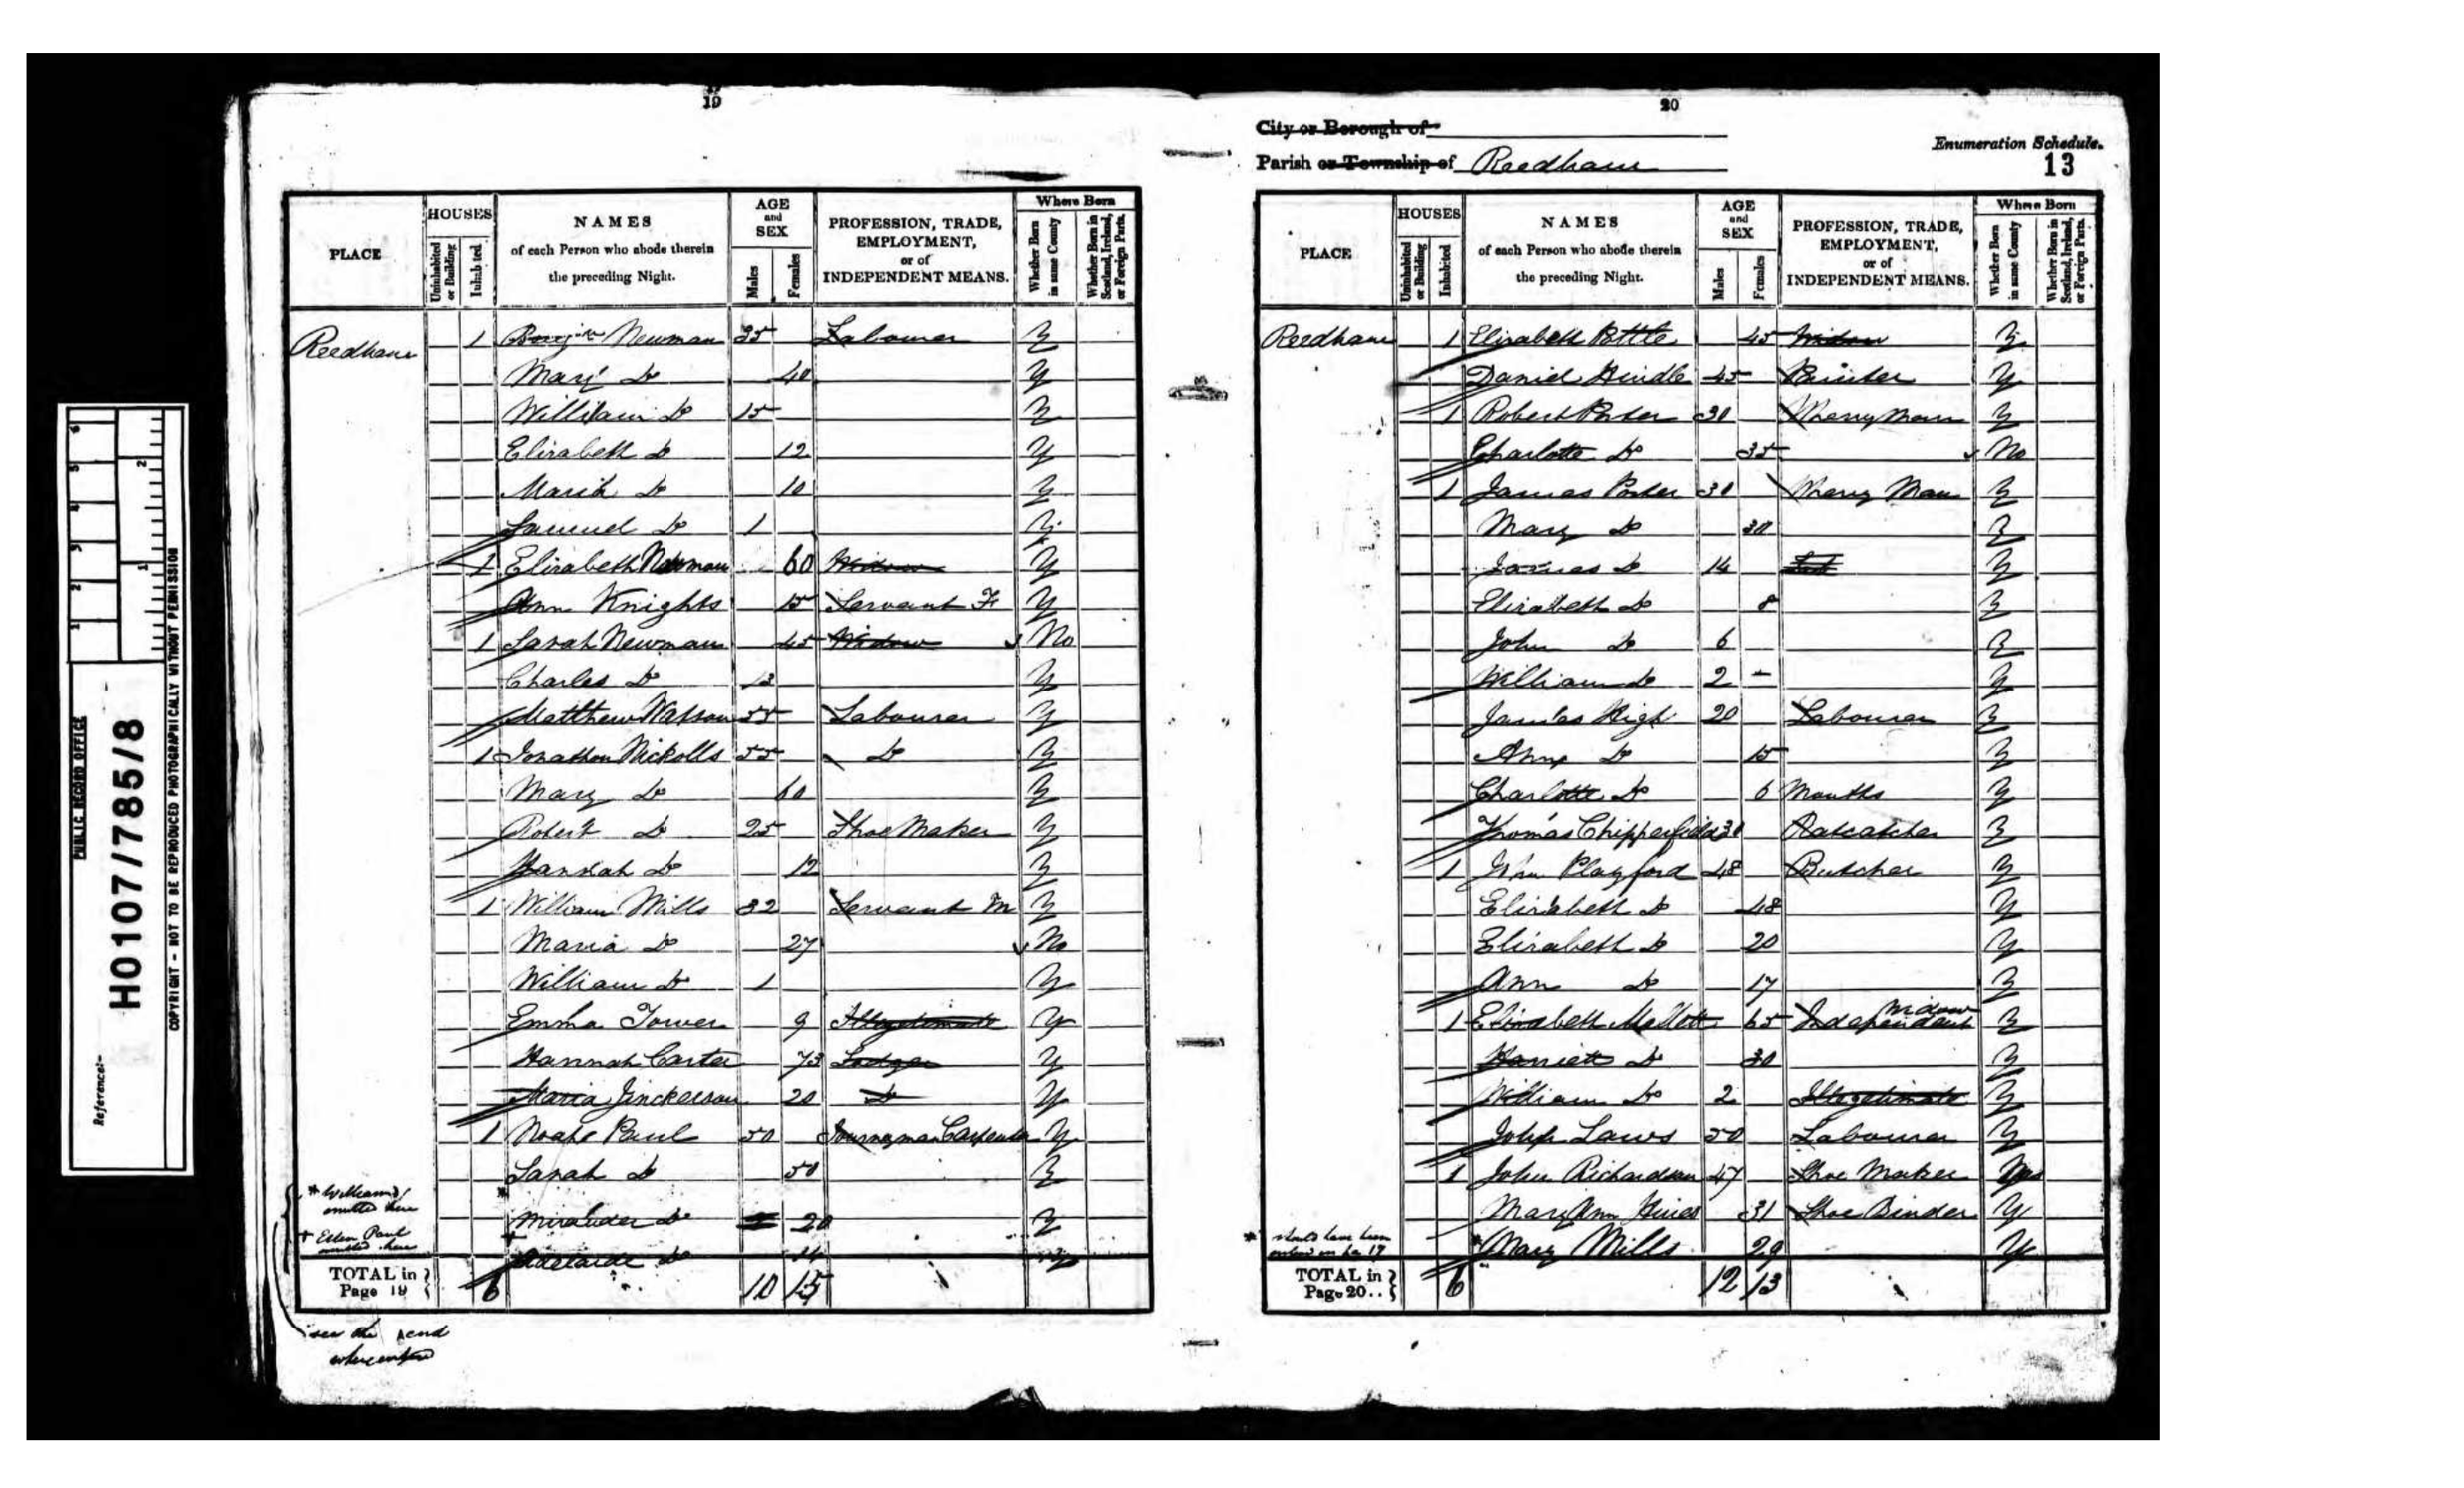 19
PLACE
HOUSES
Uninhabited or Building
Inhabited
NAMES
of each Person who abode therein
the preceding Night.
AGE
and
SEX
Males
Females
PROFESSION, TRADE,
EMPLOYMENT,
or of
INDEPENDENT MEANS.
Where Born
Whether Born in same County
Whether Born in Scotland, Ireland, or Foreign Parts.
Reedham 1 Newman 35 Labourer Y
Mary Do 40 Y
William Do 15 Y
Elizabeth Do 12 Y
Maria Do 10 Y
Samuel Do 1 Y
1 Elizabeth Newman 60 Widow Y
Ann Knights 15 Servant F Y
1 Sarah Newman 45 Widow No
Charles Do 12 Y
Matthew Watson 55 Labourer Y
1 Jonathon Nickolls 55 Do Y
Mary Do 60 Y
Robert Do 25 Shoe Maker Y
Hannah Do 12 Y
1 William Mills 32 Servant M Y
Maria Do 27 No
William Do 1 Y
Emma Tower 9 Illegitimate Y
Hannah Carter 73 Lodger Y
Maria Jinckerson 20 Do Y
1 Noah Paul 50 Journeyman Carpenter Y
Sarah Do 50 Y
* William omitted here
Do 20 Y
+ Ellen Paul omitted here
Adelaide Do 14 Y
TOTAL in Page 19 6 10 15
see the end
where
20
City or Borough of
Parish or Township of Reedham
Enumeration Schedule.
13
PLACE
HOUSES
Uninhabited or Building
Inhabited
NAMES
of each Person who abode therein
the preceding Night.
AGE
and
SEX
Males
Females
PROFESSION, TRADE,
EMPLOYMENT,
or of
INDEPENDENT MEANS.
Where Born
Whether Born in same County
Whether Born in Scotland, Ireland, or Foreign Parts.
Reedham 1 Elizabeth Pottle 45 Widow Y
Daniel Hindle 45 Y
1 Robert Porter 30 Wherry Man Y
Charlotte Do 35 No
1 James Porter 30 Wherry Man Y
Mary Do 30 Y
James Do 14 Y
Elizabeth Do 8 Y
John Do 6 Y
William Do 2 - Y
James High 20 Labourer Y
Ann Do 15 Y
Charlotte Do 6 Months Y
Thomas Chipperfield 30 Ratcatcher Y
1 John Playford 48 Butcher Y
Elizabeth Do 48 Y
Elizabeth Do 20 Y
Ann Do 17 Y
1 Elizabeth Mallett 65 Independent Widow Y
Harriett Do 30 Y
William Do 2 Illegitimate Y
John Laws 50 Labourer Y
1 John Richardson 47 Shoe Maker
Mary Ann Hines 31 Shoe Binder Y
* should have been entered in page 19
* Mary Mills 29 Y
TOTAL in Page 20.. 6 12 13
PUBLIC RECORD OFFICE
Reference:-
HO107/785/8
COPYRIGHT - NOT TO BE REPRODUCED PHOTOGRAPHICALLY WITHOUT PERMISSION
1 2 3 4 5 6
1 2